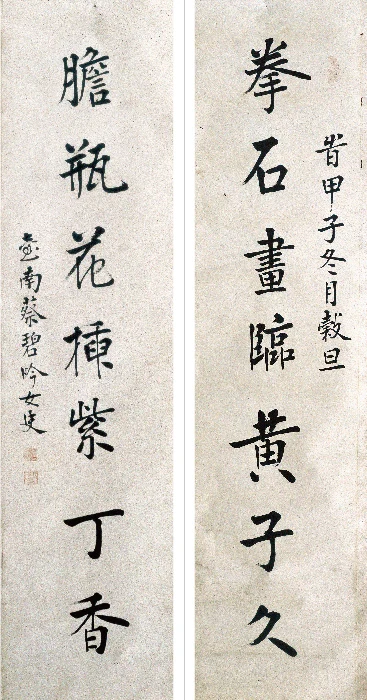 旹甲子冬月穀旦
拳石畫臨黃子久
膽瓶花插紫丁香
臺南蔡碧吟女史